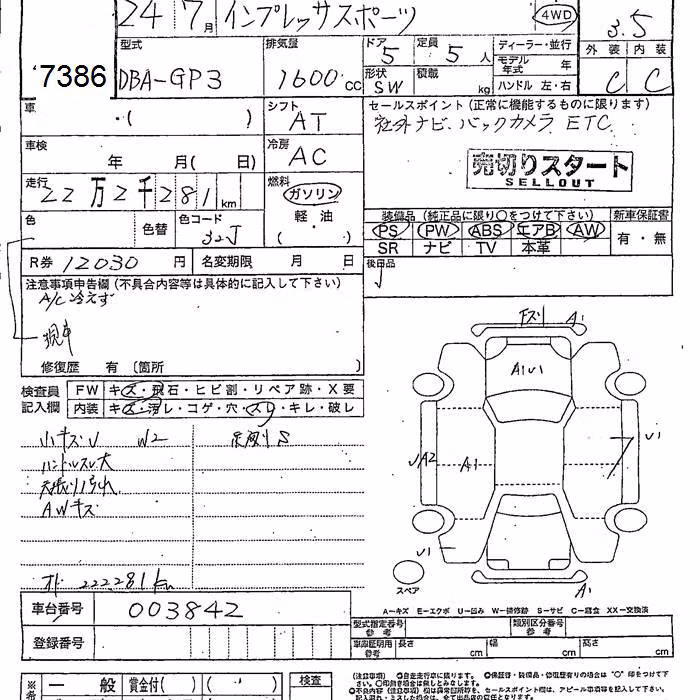 24 7月 インプレッサスポーツ 4WD 3.5
型式 排気量 ドア 定員 ディーラー・並行 外装 内装
7386 DBA-GP3 1600 cc 5 5人 モデル年式 年 C C
形状 SW 積載 kg ハンドル 左・右
車 ・( ) シフト AT セールスポイント(正常に機能するものに限ります)
社外ナビ バックカメラ ETC
車検 年 月( 日) 冷房 AC
売切りスタート
SELLOUT
走行 22万2千281km 燃料 ガソリン
軽・油
装備品(純正品に限り○をつけて下さい) 新車保証書
色 色替 色コード 32J ( ・ )
PS PW ABS エアB AW 有・無
SR ナビ TV 本革
R券 12030円 名変期限 月 日 後日品
注意事項申告欄(不具合内容等は具体的に記入して下さい)
A/C冷えず
現車
修復歴 有〔箇所 〕
検査員記入欄 FW キズ・飛石・ヒビ割・リペア跡・X要
内装 キズ・汚レ・コゲ・穴・スレ・キレ・破レ
小キズU W2
ハンドルスレ大
AWキズ
222281km
A1
A1U1
UA2 A1 U1
U1
A1
スペア
A-キズ E-エクボ U-凹み W-補修跡 S-サビ C-腐食 XX-交換済
車台番号 003842
型式指定番号 参考 類別区分番号 参考
登録番号
車庫証明用 参考 長さ cm 幅 cm 高さ cm
一般 賞金付( ) ( ) 検査